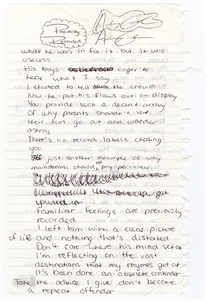 what he was in for it but it was
useless
His boys eager to
hear what I say
I started to tell the crowd
how he puts his flaws out on display
You provide such a decent array
Of why parents shouldn't let
their kids go out and wander
astray
There's no record labels chasing
you
just another example of why
mainstream should pay
get
Familiar feelings are previously
recorded
I left him with a clear picture
of life and nothing that's distorted
Don't care where his mind sets
I'm reflecting on the cost
destination that my rhymes get at
It's been done an obsolete comeback
Take the advice I give don't become
a repeat offender